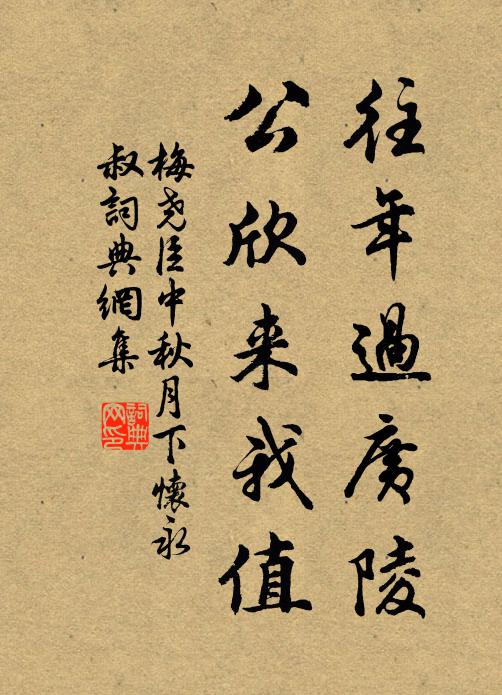 往年過廣陵
公欣来我值
梅堯臣中秋月下懷永
叔詞典網集
詞典網印